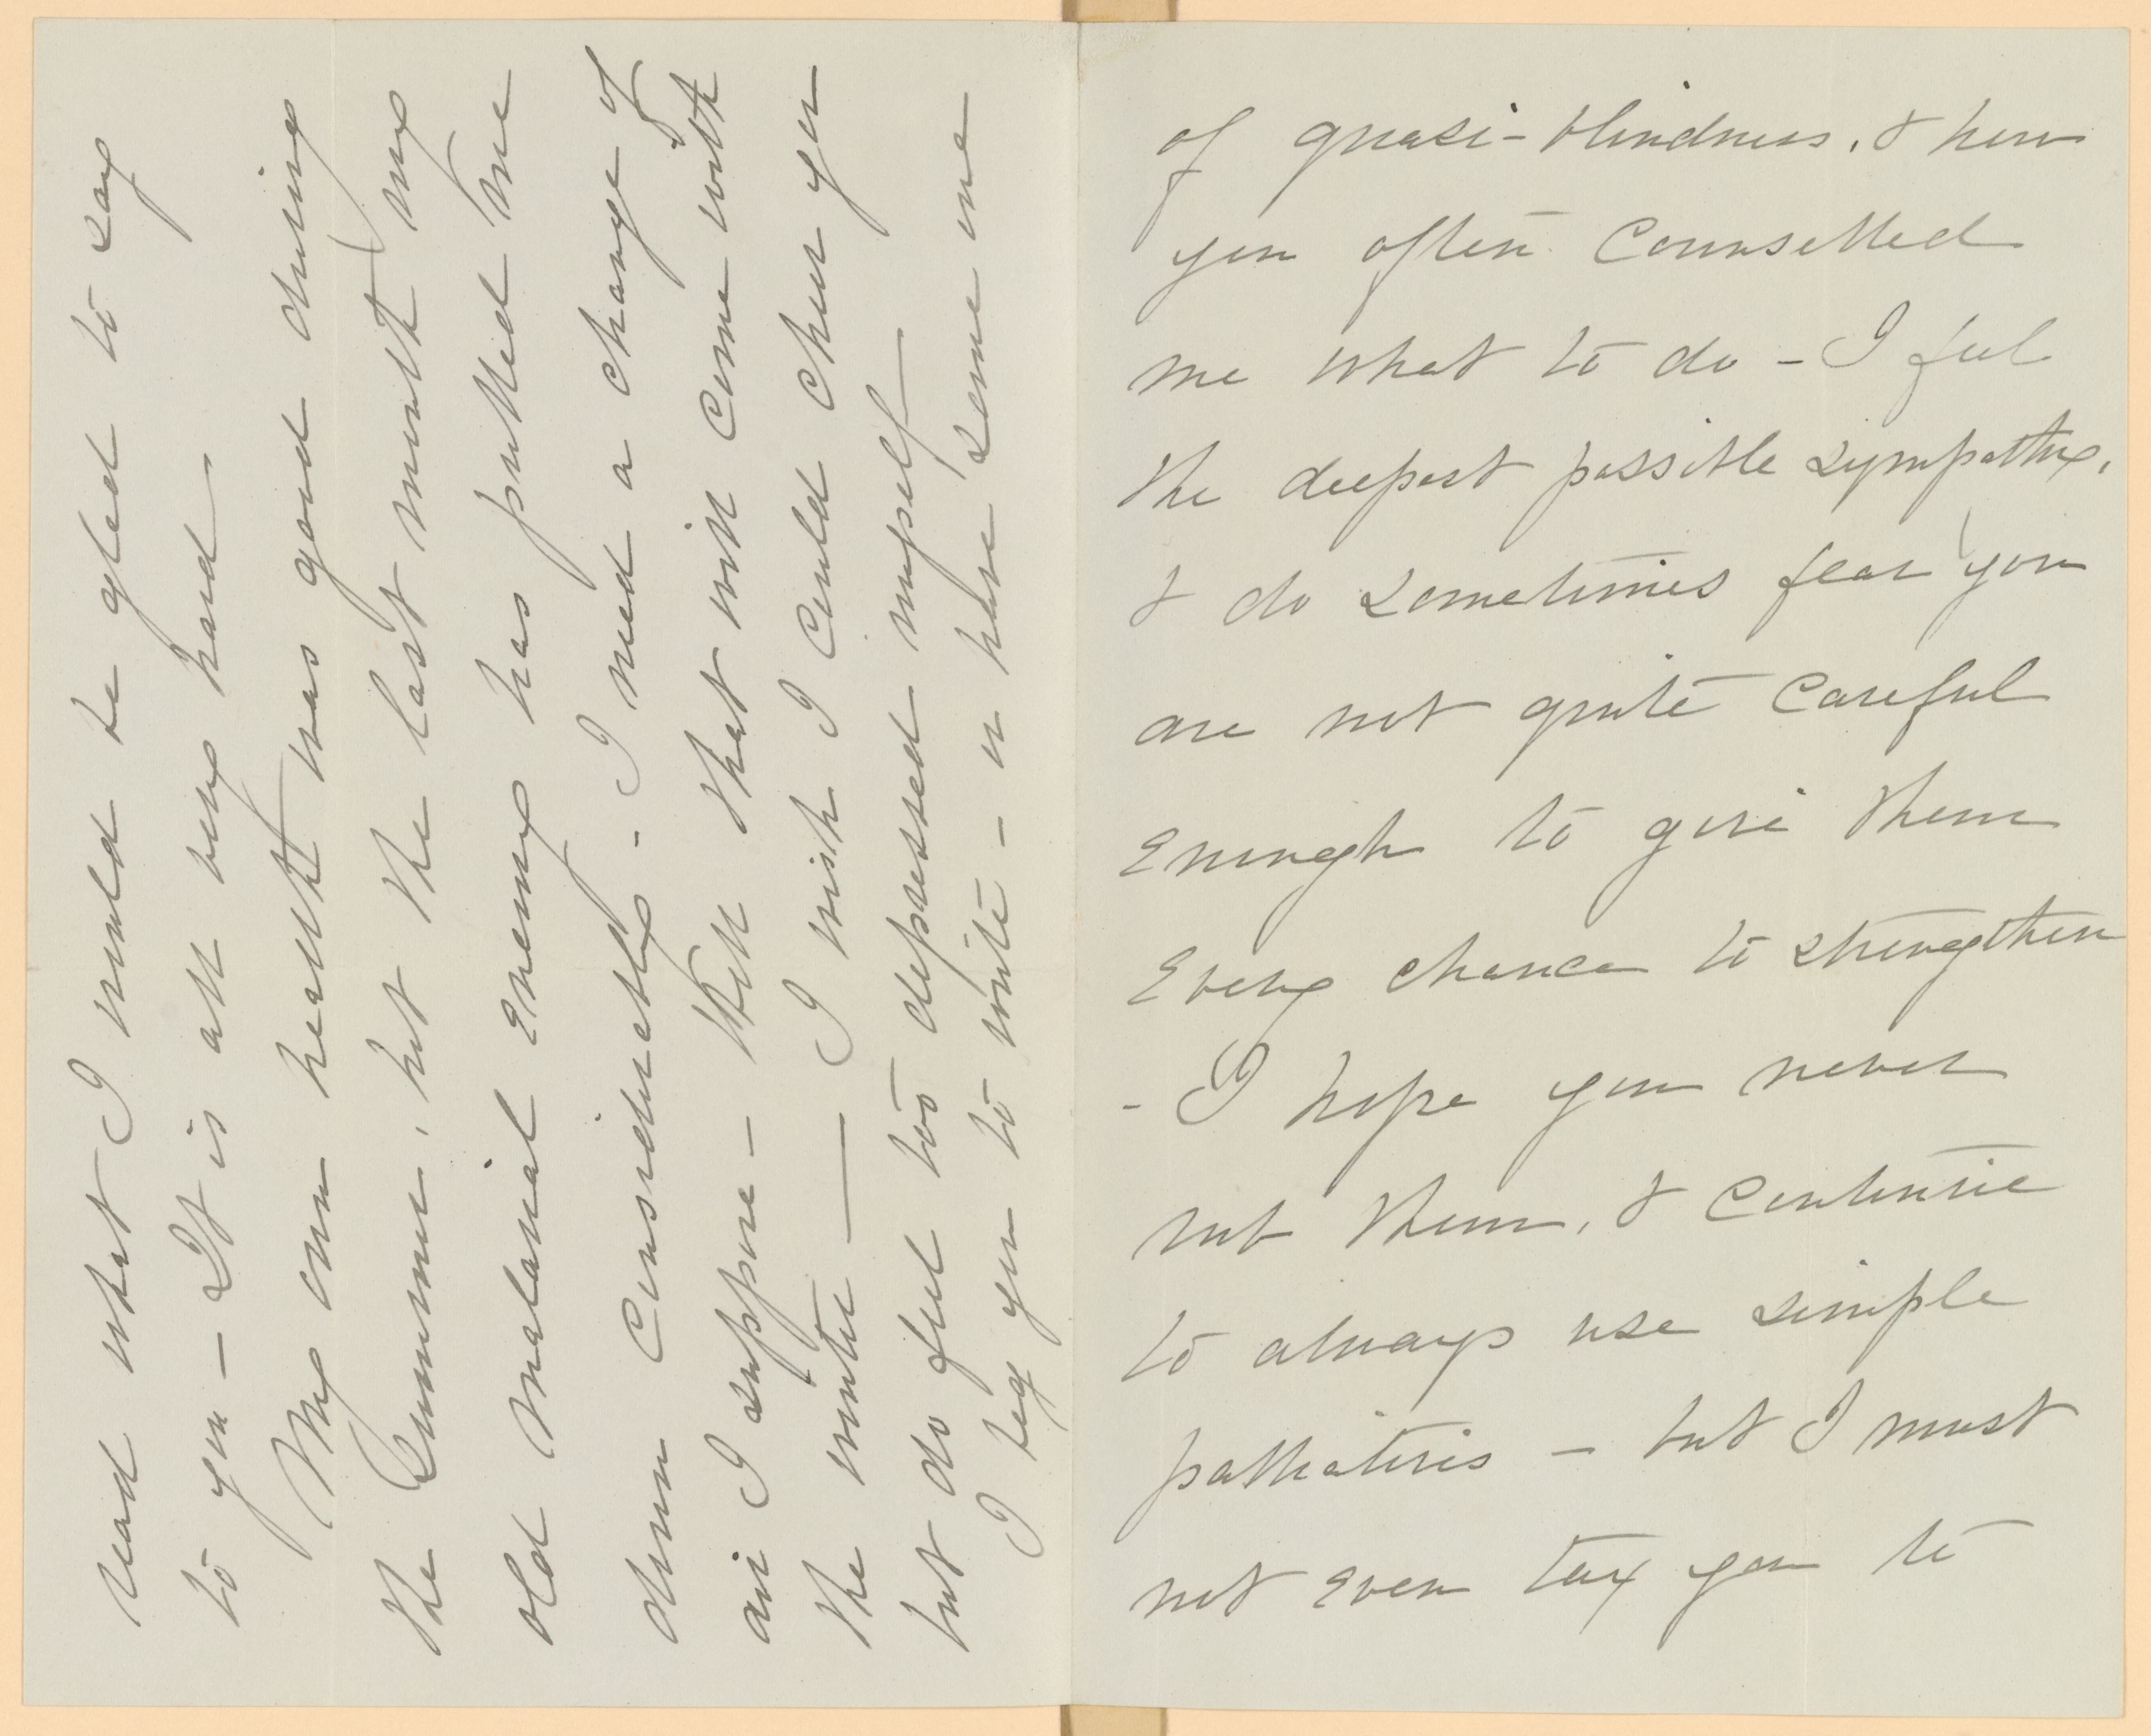 of quasi-blindness, & how
you often counselled
me what to do - I feel
the deepest possible sympathy,
& do sometimes fear you
are not quite careful
enough to give them
every chance to strengthen
- I hope you never
rub them, & continue
to always use simple
palliatives - but I must
not even tax you to
read what I would be glad to say
to you - It is all very hard
My own health was good during
the Summer, but the last month my
old malarial enemy has pulled me
down considerably - I need a change of
air I suppose - that will come with
the winter — I wish I could cheer you
but do feel too depressed myself
I beg you to write - or have some one